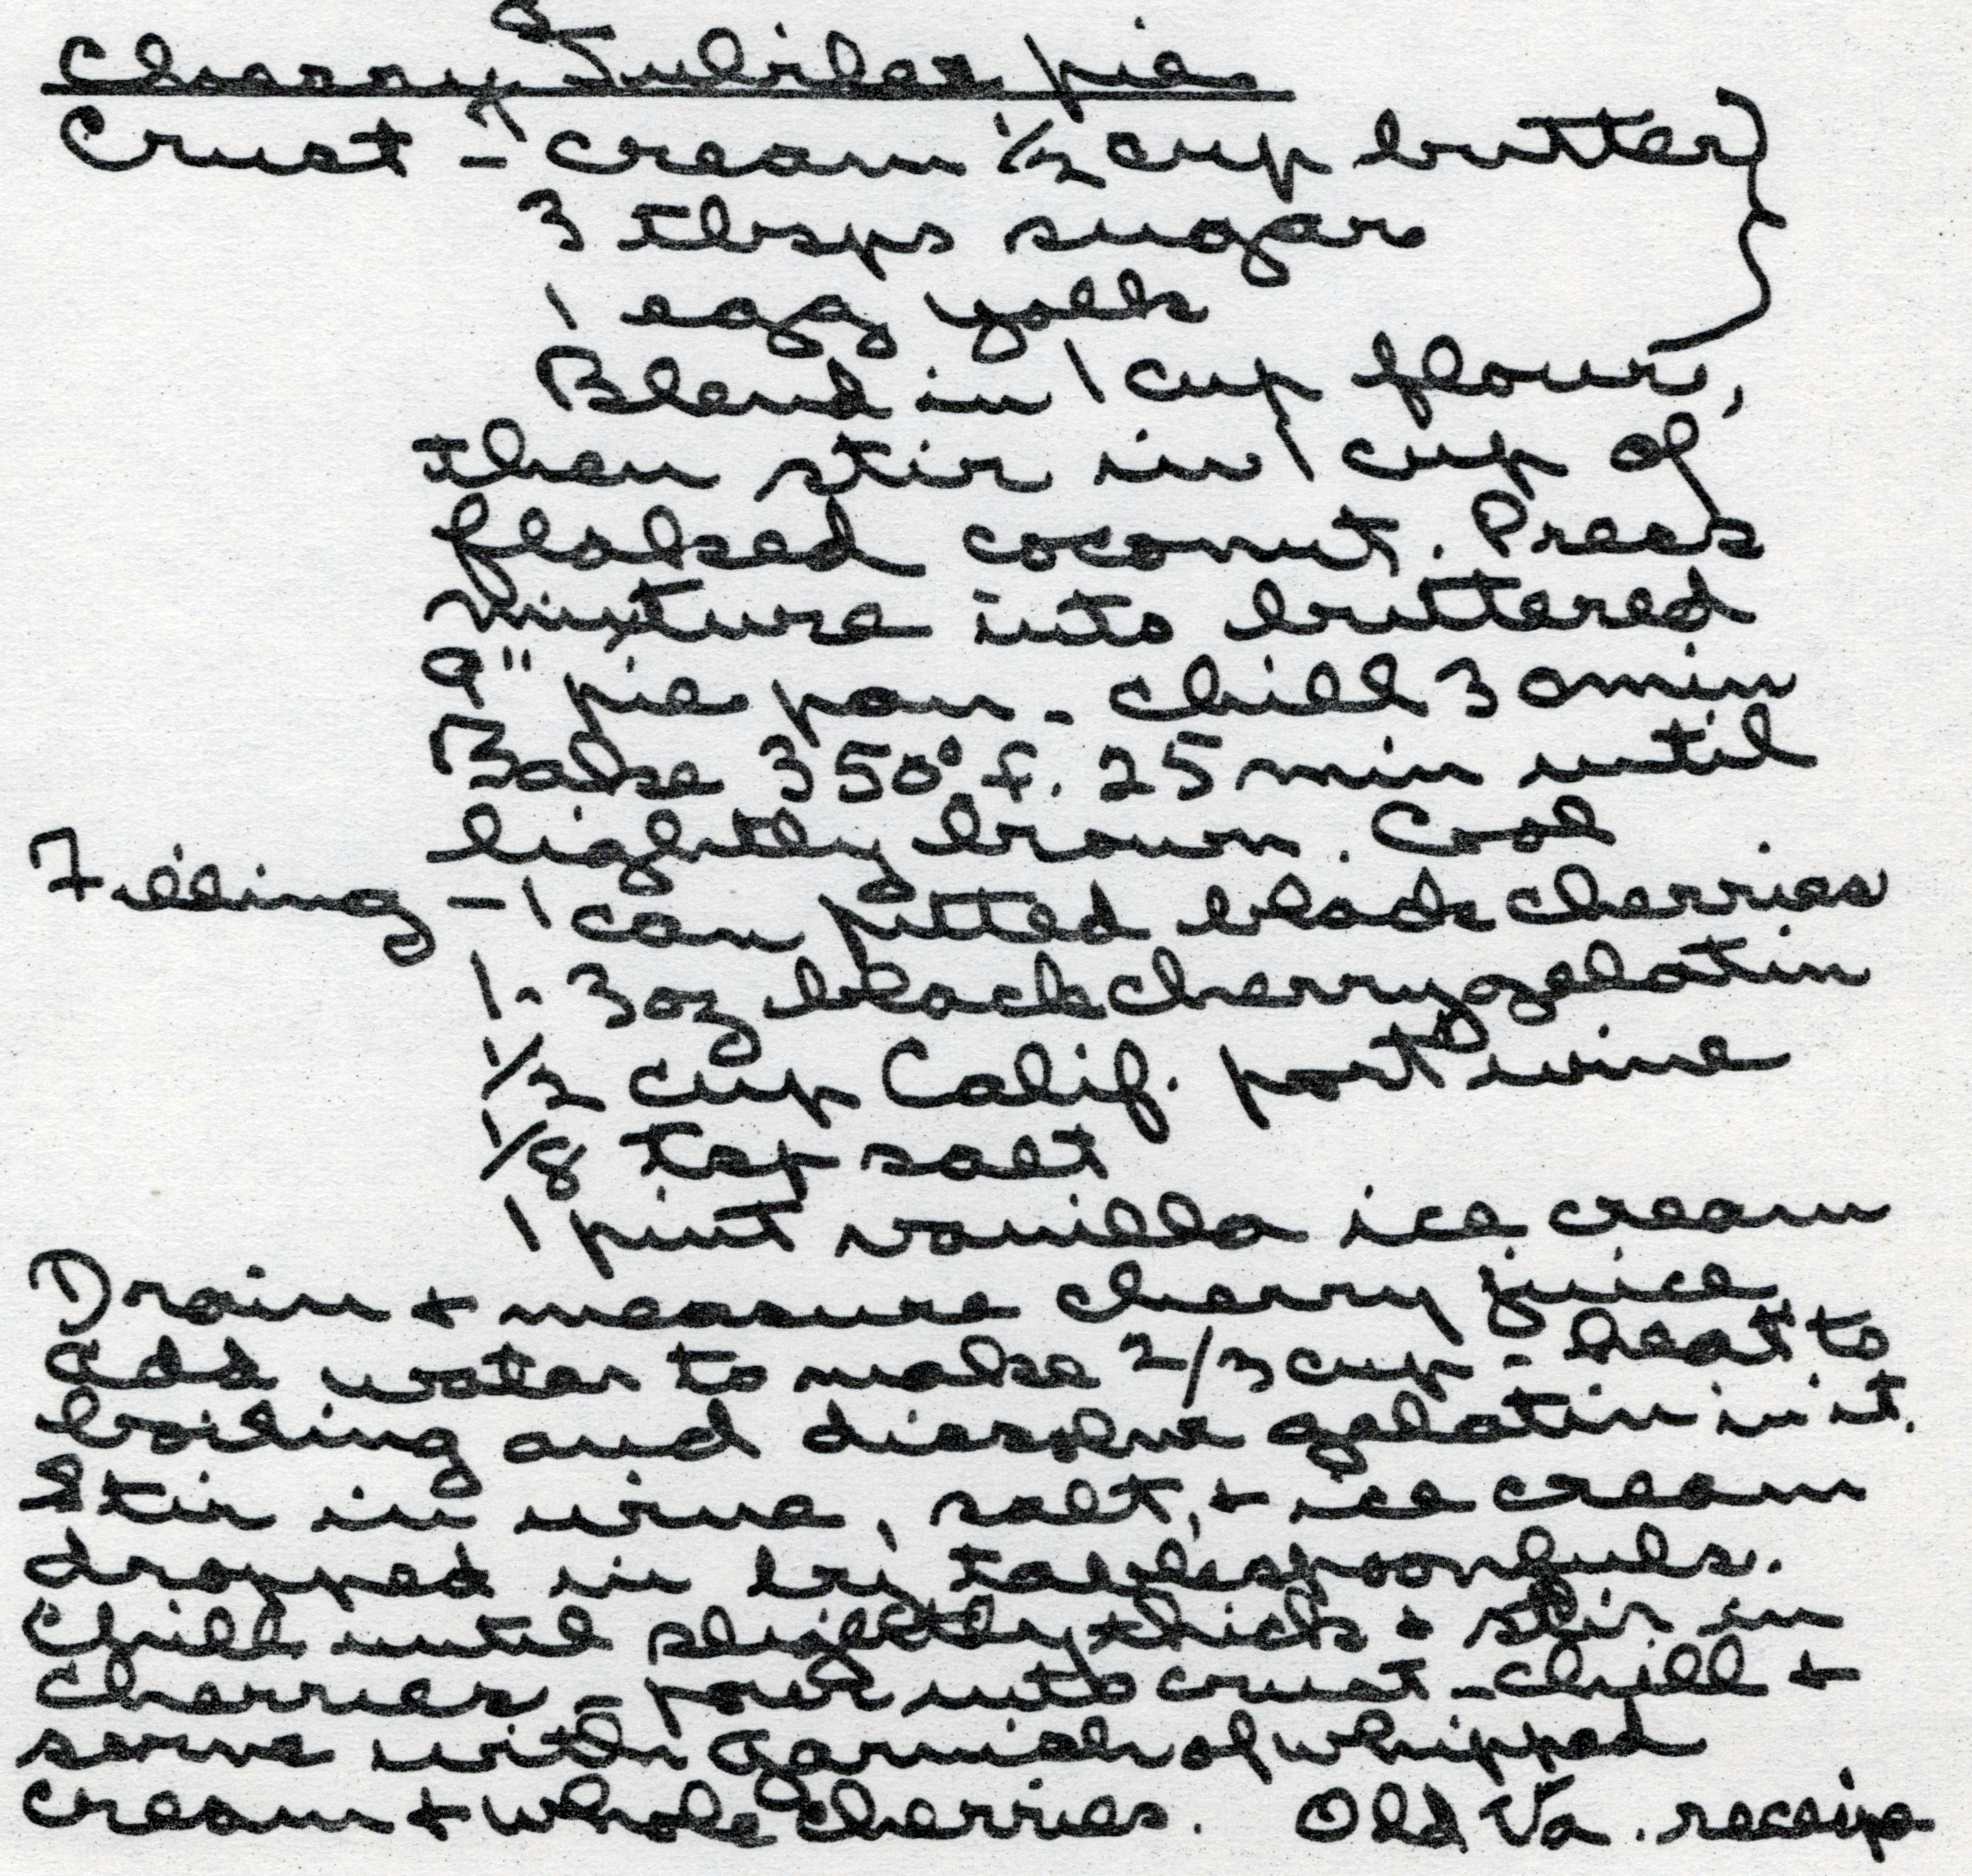 Cherry Jubilee pie
Crust - cream 1/2 cup butter
3 tbsps sugar
1 egg yolk
Blend in 1 cup flour,
then stir in 1 cup of
flaked coconut. Press
mixture into buttered
9" pie pan - chill 30 min
Bake 350° f. 25 min until
lightly brown. Cool
Filling - 1 can pitted black cherries
1 - 3 oz black cherry gelatin
1/2 cup Calif. port wine
1/8 tsp salt
1 pint vanilla ice cream
Drain + measure cherry juice
add water to make 2/3 cup - heat to
boiling and dissolve gelatin in it.
Stir in wine, salt, + ice cream
dropped in by tablespoonfuls.
Chill until slightly thick + stir in
cherries - pour into crust - chill +
serve with garnish of whipped
cream + whole cherries. Old Va. receipe